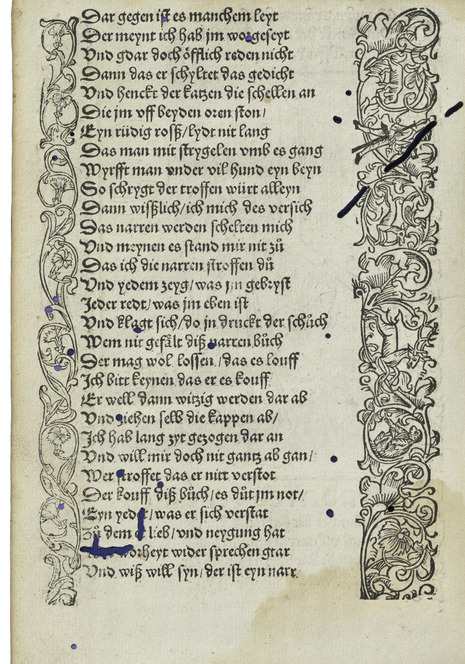 Dar gegen ist es manchem leyt
Der meynt ich hab jm worgeseyt
Vnd gdar doch öfflich reden nicht
Dann das er schyltet das gedicht
Vnd henckt der katzen die schellen an
Die jm vff beyden oren ston/
Eyn rüdig roß/lydt nit lang
Das man mit strygelen vmb es gang
Wyrfft man vnder vil hund eyn beyn
So schrygt der troffen würt alleyn
Dann wißlich/ich mich des versich
Das narren werden schelten mich
Vnd meynen es stand mir nit zů
Das ich die narren stroffen dů
Vnd yedem zeyg/was jm gebryst
Jeder redt/was jm eben ist
Vnd klagt sich/do jn druckt der schůch
Wem nit gefält diß narren bůch
Der mag wol lossen/das es louff
Ich bitt keynen das er es kouff
Er well dann witzig werden dar ab
Vnd ziehen selb die kappen ab/
Ich hab lang zyt gezogen dar an
Vnd will mir doch nit gantz ab gan/
Wer stroffet das er nitt verstot
Der kouff diß bůch/es důt jm not/
Eyn yeder/was er sich verstat
Zů dem er lieb/vnd neygung hat
worheyt wider sprechen gtar
Vnd wiß will syn/der ist eyn narr